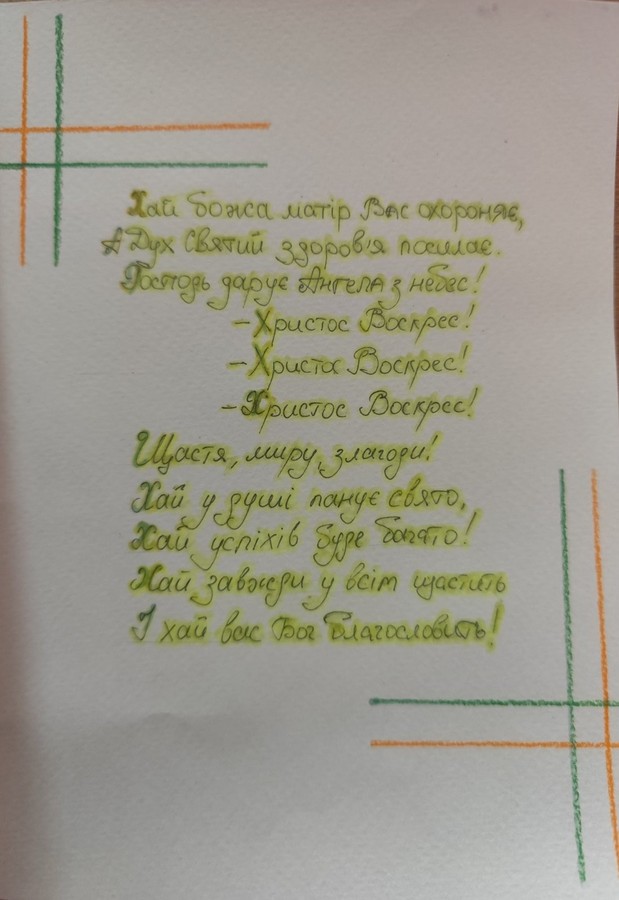 Хай божа матір Вас охороняє,
А Дух Святий здоров'я посилає.
Господь дарує Ангела з небес!
- Христос Воскрес!
- Христос Воскрес!
- Христос Воскрес!
Щастя, миру, злагоди!
Хай у душі панує свято,
Хай успіхів буде багато!
Хай завжди у всім щастить
І хай вас Бог благословить!